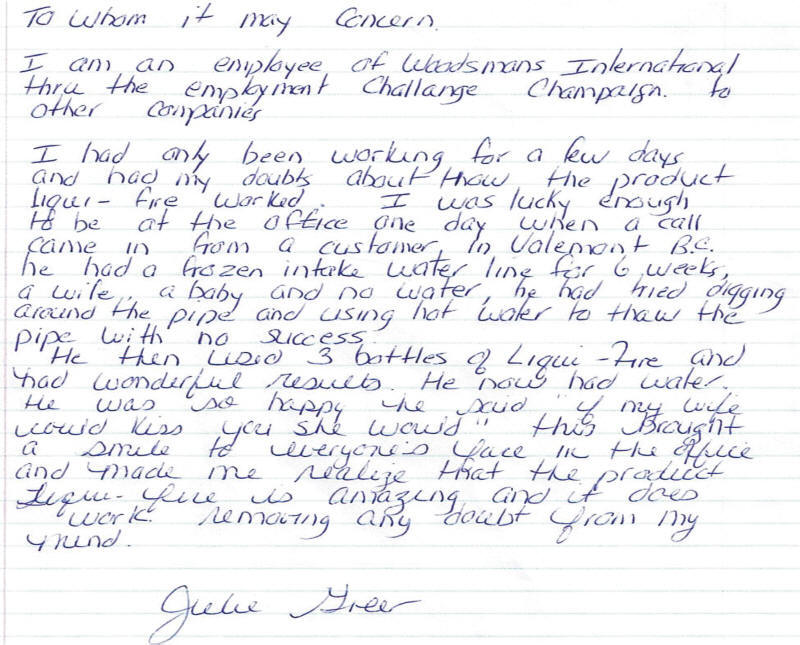 To Whom it may Concern.
I am an employee of Woodsmans International
thru the employment Challange Champaign. to
other Companies
I had only been working for a few days
and had my doubts about thow the product
liqui-fire worked. I was lucky enough
to be at the office one day when a call
came in from a customer, in Valemont B.C.
he had a frozen intake water line for 6 weeks,
a wife, a baby and no water, he had tried digging
around the pipe and using hot water to thaw the
pipe with no success.
He then used 3 bottles of Liqui-Fire and
had wonderful results. He now had water.
He was so happy he said "if my wife
would kiss you she would" this brought
a smile to everyone's face in the office
and made me realize that the product
Liqui-fire is amazing and it does
work. removing any doubt from my
mind.
Julie Greer